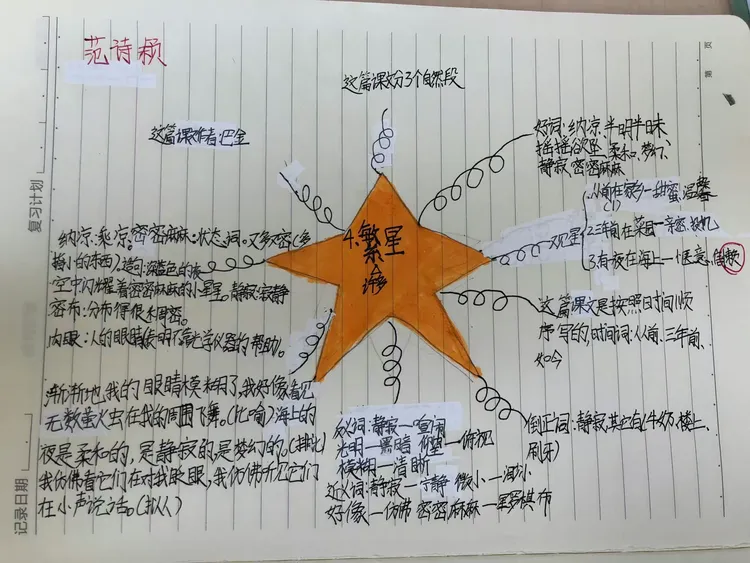 范诗颖
这篇课文分3个自然段
这篇课作者:巴金
好词:纳凉、半明半昧
摇摇欲坠、柔和、梦幻、
静寂、密密麻麻
4.繁星
许多
观星
1.从前在家乡—甜蜜、温馨
2.三年前在菜园—亲密、
3.有夜在海上—惬意、
这篇课文是按照时间顺
序写的,时间词:从前、三年前、
如今
倒正词:静寂,其它有(牛奶、楼上、
刷牙)
纳凉:乘凉。密密麻麻:状态词。又多又密(多
指小的东西)造句:深蓝色的夜
空中闪耀着密密麻麻的小星星。静寂:寂静
密布:分布得很稠密。
肉眼:人的眼睛(表明不靠光学仪器的帮助。
渐渐地,我的眼睛模糊了,我好像看见
无数萤火虫在我的周围飞舞。(比喻)海上的
夜是柔和的,是静寂的,是梦幻的。(排比)
我仿佛看它们在对我眨眼,我仿佛听见它们
在小声说话。(拟人)
反义词:静寂—喧闹
光明—黑暗 仰望—俯视
模糊—清晰
近义词:静寂—宁静 微小—细小
好像—仿佛 密密麻麻—星罗棋布
复习计划
记录日期
第 页